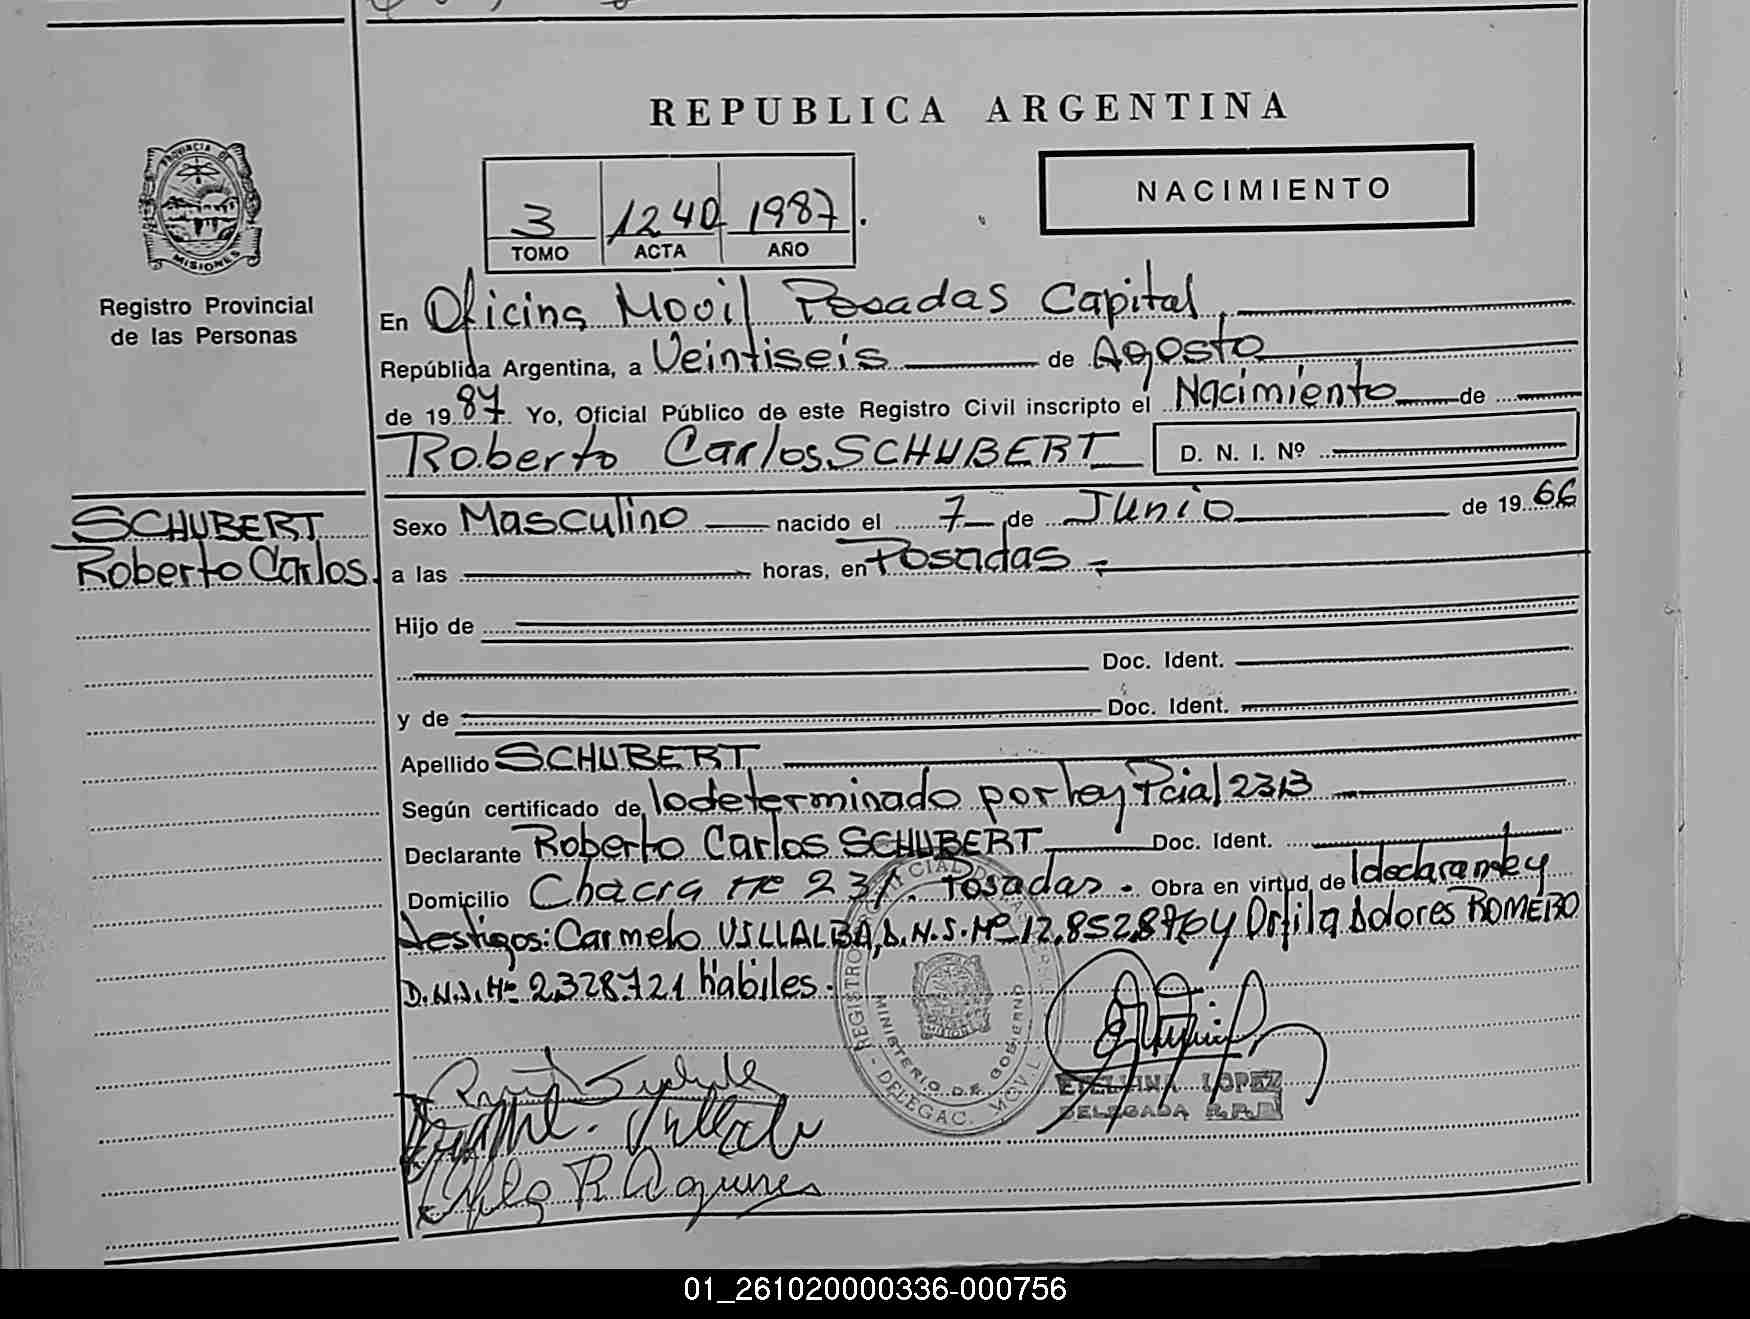 REPUBLICA ARGENTINA
PROVINCIA DE
MISIONES
Registro Provincial
de las Personas
3 1240 1987
TOMO ACTA AÑO
NACIMIENTO
En Oficina Movil Posadas Capital
República Argentina, a Veintiseis de Agosto
de 19 87 Yo, Oficial Público de este Registro Civil inscripto el Nacimiento de
Roberto Carlos SCHUBERT D. N. I. Nº
SCHUBERT
Roberto Carlos
Sexo Masculino nacido el 7 de Junio de 19 66
a las horas, en Posadas
Hijo de
Doc. Ident.
y de Doc. Ident.
Apellido SCHUBERT
Según certificado de lo determinado por ley Pcial 2313
Declarante Roberto Carlos SCHUBERT Doc. Ident.
Domicilio Chacra nº 231. Posadas. Obra en virtud de
testigos: Carmelo VILLALBA, D.N.I. Nº 12.852.876 y Orfila Dolores ROMERO
D.N.I. Nº 2.328.721 habiles.
MINISTERIO DE GOBIERNO
ETELVINA LOPEZ
DELEGADA R.P.P.
01_261020000336-000756